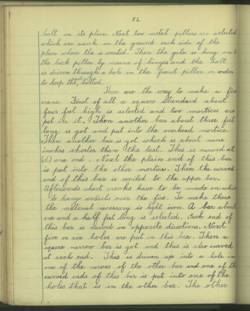 52.
ball in its place. Next two metal pillars are selected
which are sunk in the ground each side of the
place where the is wanted. Then the gate is hung onto
the back pillar by means of hinges and the ball
is driven through a hole in the front pillar in order
to keep the bolted.
Here are the way to make a fire
crane. First of all a square standard about
four feet high is selected and two mortices are
put in it. Then another bar about three feet
long is got and put into the overhead mortice.
Then another bar is got which is about nine
inches shorter than the last. This is mounted at
end. Next the plain end of this bar
is put into the other mortice. Then the
end of this bar is welded to the upper bar.
Afterwards what crooks have to be made on which
to hang articles over the fire. To make these
the material necessary is light iron. A bar about
one and a half feet long is selected. Each end of
this bar is turned in opposite directions. Next
five or six holes are put in this bar. Then a
square narrow bar is got and this is also turned
at each end. This is driven up into a hole in
one of the ends of the other bar and one of the
turned ends of this bar is put into one of the
holes that is in the other bar. The other